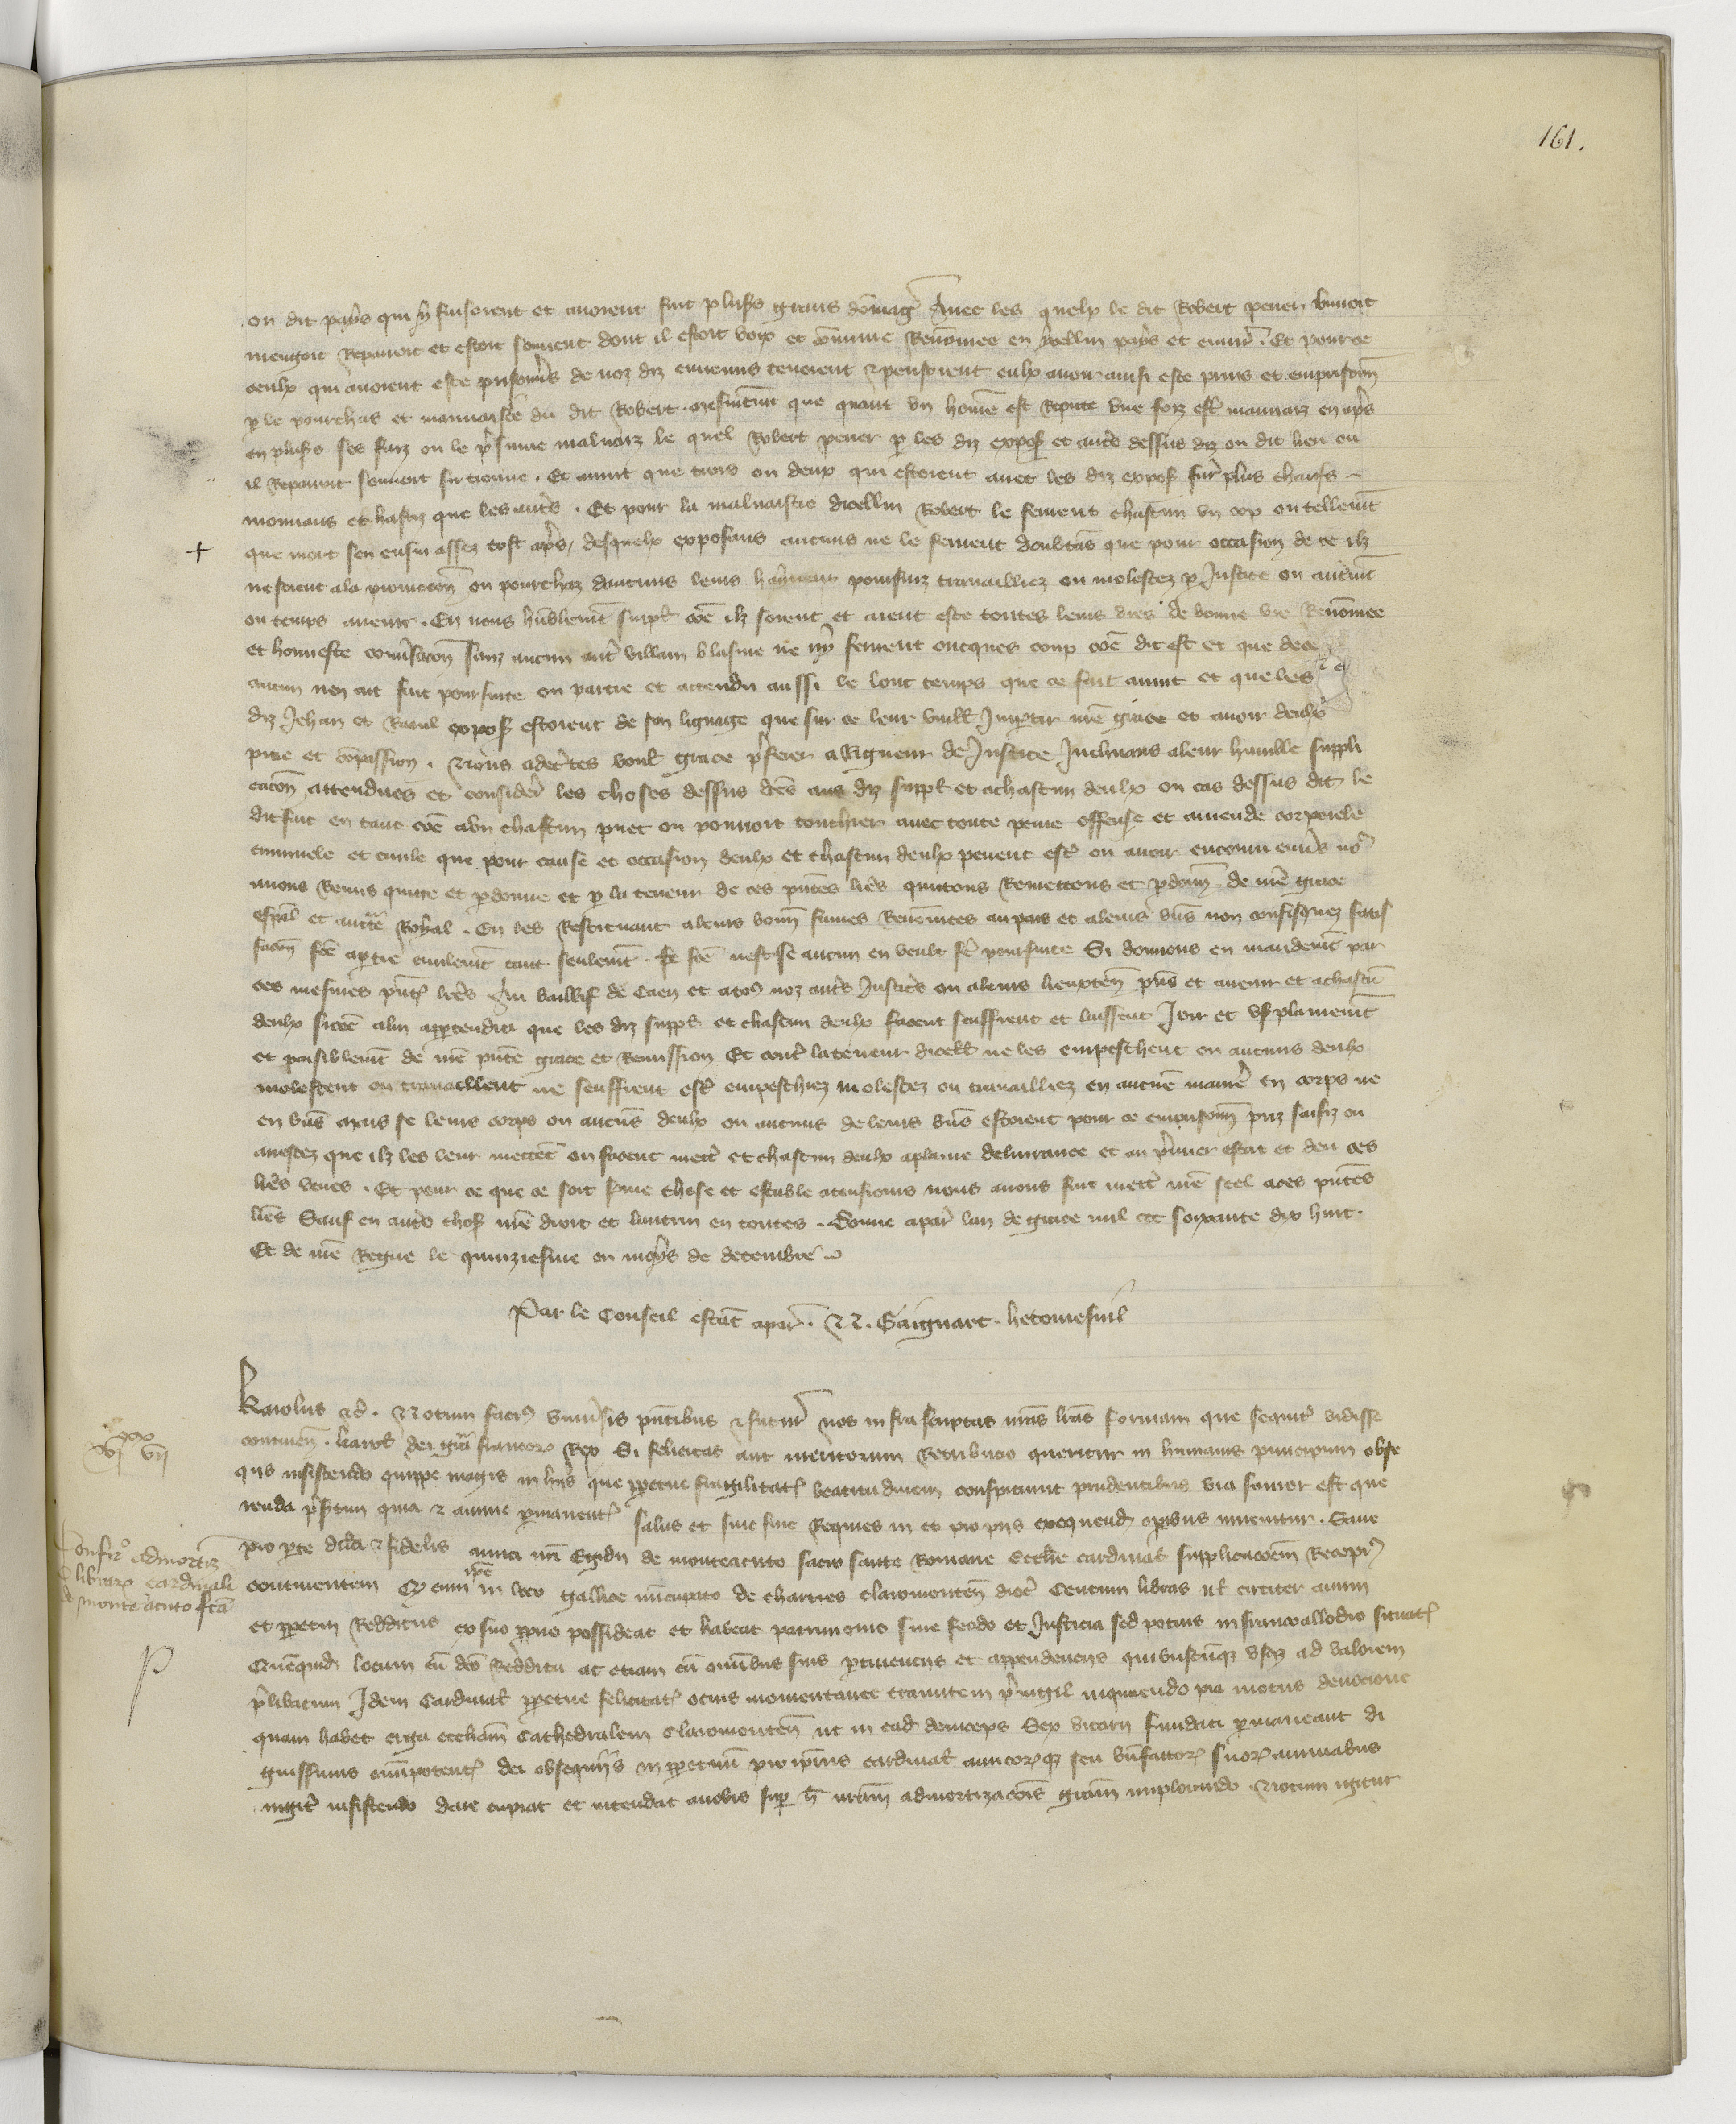 161.
on dit pays qui y fusoient et avoient fait plus's grans domag' Avec les quelx le dit Robert pener buvoit
mengoit Reparoit et estoit souvent dont il estoit voix et comune Renomee en ycellui pays et envir'. Et pour ce
ceulx qui avoient este prisonn's de noz diz ennemis tenoient & pensoient eulx avoir ainsi este prins et emprisonn'
p le pourchas et mauvaistie du dit Robert. mesmemt que quant un home est Repute une foiz est' mauvaiz en ap's
en plus's ses faiz on le p'sume malvaiz le quel Robert pener p les diz expos' et aut's dessus diz ou dit lieu ou
il Reparoit souvent fu trouve. Et avint que trois ou deux qui estoient avec les diz expos' fur' plus chaux
mouvans et hastiz que les aut's. Et pour la malvaistie dicellui Robert le ferirent chascun un cop ou tellemt
+ que mort sen ensui assez tost ap's, desquelx exposans aucuns ne le ferirent doubtans que pour occasion de ce ilz
ne soient a la promocon ou pourchaz daucuns leurs hayneux poursuiz travailliez ou molestez p Justice ou aut'mt
ou temps avenir. En nous humblemt suppl' coe ilz soient et aient este toutes leurs vies de bonne vie Renomee
et honneste conv'sacon sanz aucun aut' villain blasme ne ny ferirent oncques coup coe dit est et que de ce
aucun nen ait fait poursuite ou partie et attendu aussi le lonc temps que ce fait avint et que les
diz Jehan et Raoul expos' estoient de son lignage que sur ce leur vueill' Impartir nre grace et avoir deulx
pitie et compassion. Nous adec'tes voul' grace p'ferer a Rigueur de Justice Inclinans a leur humble suppli
cacon attendues et consider' les choses dessus dces aus diz suppl' et a chascun deulx ou cas dessus dit le
dit fait en tant coe a un chascun puet ou pourroit touchier avec toute peine offense et amende corporele
criminele et civile que pour cause et occasion deulx et chascun deulx peuent est' ou avoir encouru env's no'
avons Remis quitte et pdonne et p la teneur de ces pntes l'res quittons Remettons et pdonn' de nre grace
esp'al et auct'te Royal. En les Restituant a leurs bonn' fames Renomees au pais et a leurs biens non confisquez satis
facon fce a ptie civilemt tant seulemt. se fce nest se aucun en veult f'e poursuite Si donnons en mandemt par
ces mesmes pnt' l'res Au bailli de Caen et a tos noz aut's Justic's ou a leurs lieuxten' pns et avenir et a chascun
deulx sicoe a lui appartendra que les diz suppl' et chascun deulx facent seuffrent et laissent Joir et us' plainemt
et paisiblemt de nre pnte grace et Remission Et cont' la teneur dicell' ne les empeschent ou aucuns deulx
molestent ou travaillent ne seuffrent est' empeschiez molestez ou travailliez en aucune manie' en corps ne
en biens mais se leurs corps ou aucuns deulx ou aucuns de leurs biens estoient pour ce emprisonn' priz saisiz ou
arrestez que ilz les leur mettent ou facent mett' et chascun deulx a plaine delivrance et au p'mier estat et deu ces
l'res veues. Et pour ce que ce soit ferme chose et estable a tousiours nous avons fait mett' nre seel a ces pntes
l'res Sauf en aut's chos' nre droit et lautrui en toutes. Donne a par' lan de grace mil ccc soixante dix huit.
Et de nre Regne le quinziesme ou moys de decembre
Par le Conseil estant a par'. N. Gaignart. hetomesnil
Karolus &c. Notum facim' univ'sis pntibus & futur' nos infrascriptas nras l'ras formam que sequit' vidisse
continen'. karol' dei gra francor' Rex Si felicitas aut meritorum Retribucio queritur in humanis principum obse
quiis insistendo quippe magis in hiis que ppetue fragilitat' beatitudinem conspiciunt prudentibus via sanior est que
renda p'sertim quia & anime p'manent' salus et sine fine Requies in et pro piis exequend' opibus invenitur. Sane
pro parte dilcti & fidelis amici nri Egidii de monteacuto sacro sancte Romane Ecclie cardinal' supplicacoem Recepim'
continentem Q cum ipe in loco gallice nuncupato de charnes claromonten' dioc' Centum libras vel circiter annui
et ppetui Redditus ex suo pprio possideat et habeat patrimonio sine feodo et Justicia sed potius in franco allodio situat'
Quequid' locum cu dco Redditu ac etiam cu omibus suis ptinenciis et appendenciis quibuscunq usq ad valorem
p'libatum Idem Cardinal' ppetue felicitat' ocius momentanee tramitem p'vigil inquirendo pia motus devocione
quam habet erga eccliam Cathedralem Claromonten' ut in ead' deinceps Sex vicarii fundati p'maneant di
gnissimis omipotent' dei obsequiis in ppetuu pro ipius cardinal' amicorq seu bnfactor' suor' animabus
iugit' insistendo dare cupiat et intendat a nobis sup h' nram admortizacois gram implorando. Notum igitur
xvj xx vij
Confir'o admortiz'
C librar' cardinali
de monte acuto fca
p